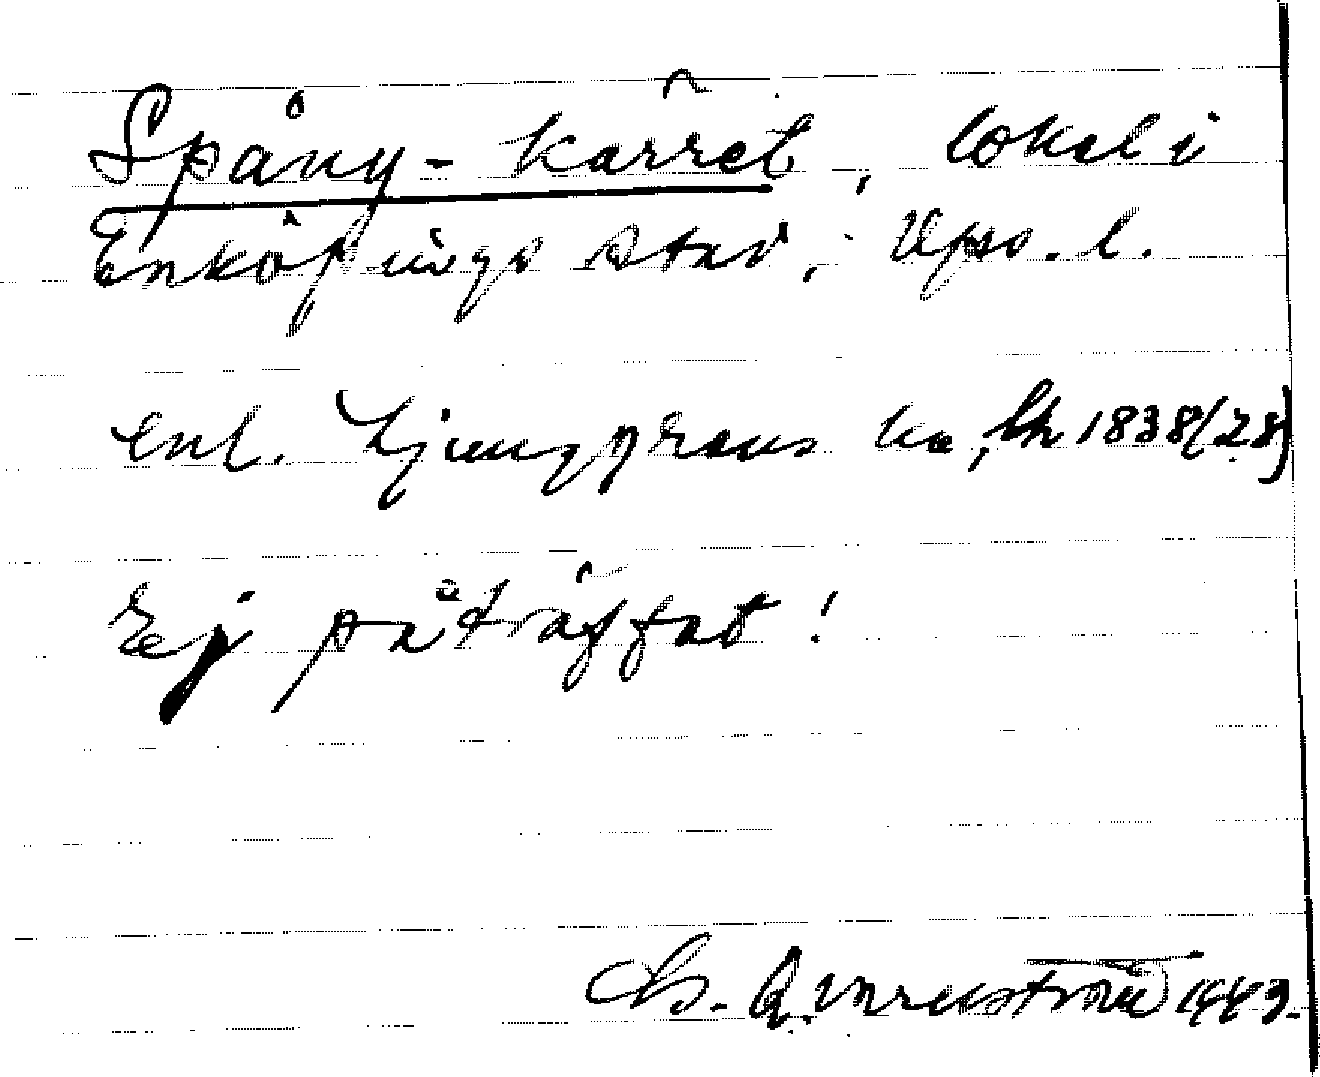 Spång-kärret, lokal i
Enköpings stad, Upps. l.
enl. Ljunggrens ka, 1838(28)
Ej påträffat!
1943.